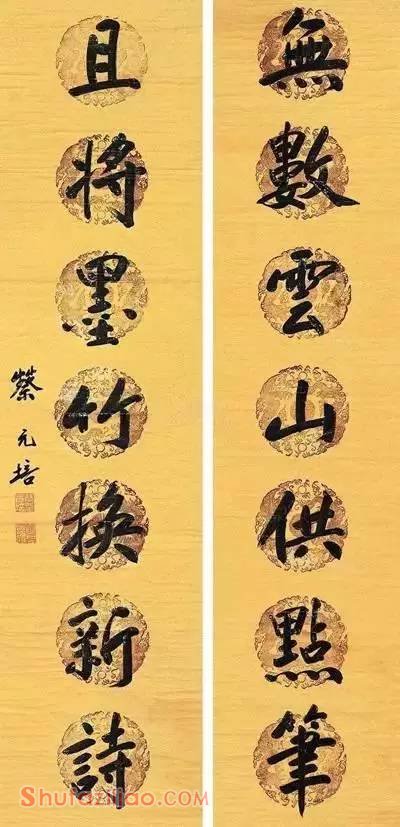 無數雲山供點筆
且將墨竹換新詩
蔡元培
Shufaziliao.com